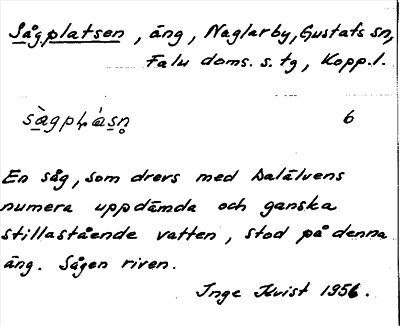 Sågplatsen, äng, Naglarby, Gustafs sn,
Falu doms. s. tg, Kopp. l.
6
En såg, som drevs med Dalälvens
numera uppdämda och ganska
stillastående vatten, stod på denna
äng. Sågen riven.
Inge Kvist 1956.